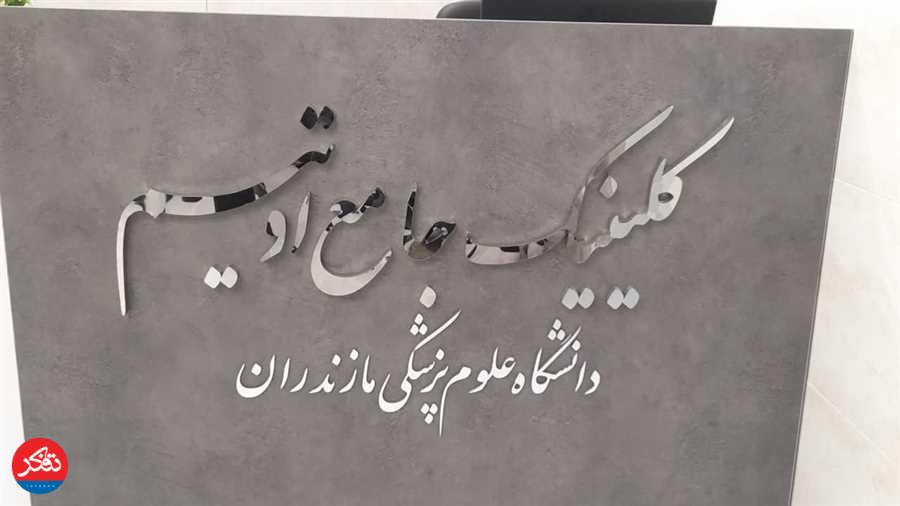 کلینیک جامع اوتیسم
دانشگاه علوم پزشکی مازندران
تفکر